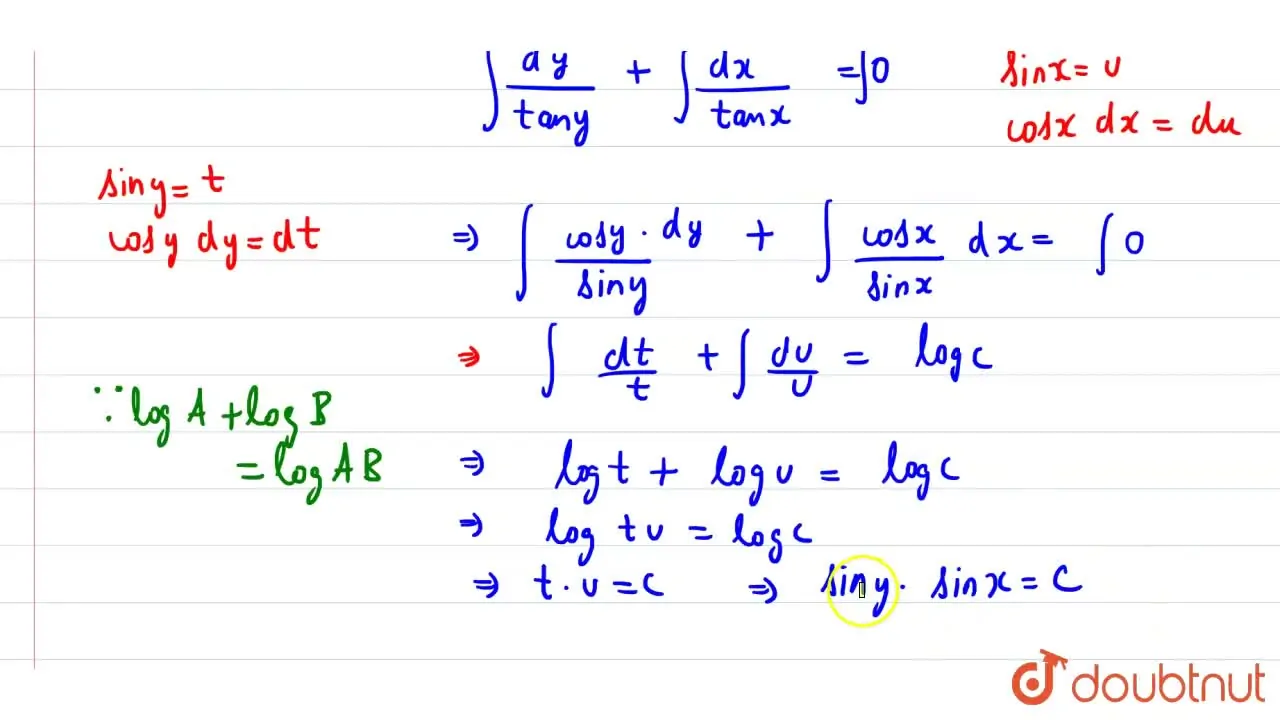 ∫ dy/tany + ∫ dx/tanx = ∫0
sinx = u
cosx dx = du
siny = t
cosy dy = dt
⇒ ∫ cosy · dy/siny + ∫ cosx/sinx dx = ∫ 0
⇒ ∫ dt/t + ∫ du/u = log c
∵ log A + log B
= log AB
⇒ log t + log u = log c
⇒ log tu = log c
⇒ t · u = c ⇒ siny · sinx = C
doubtnut